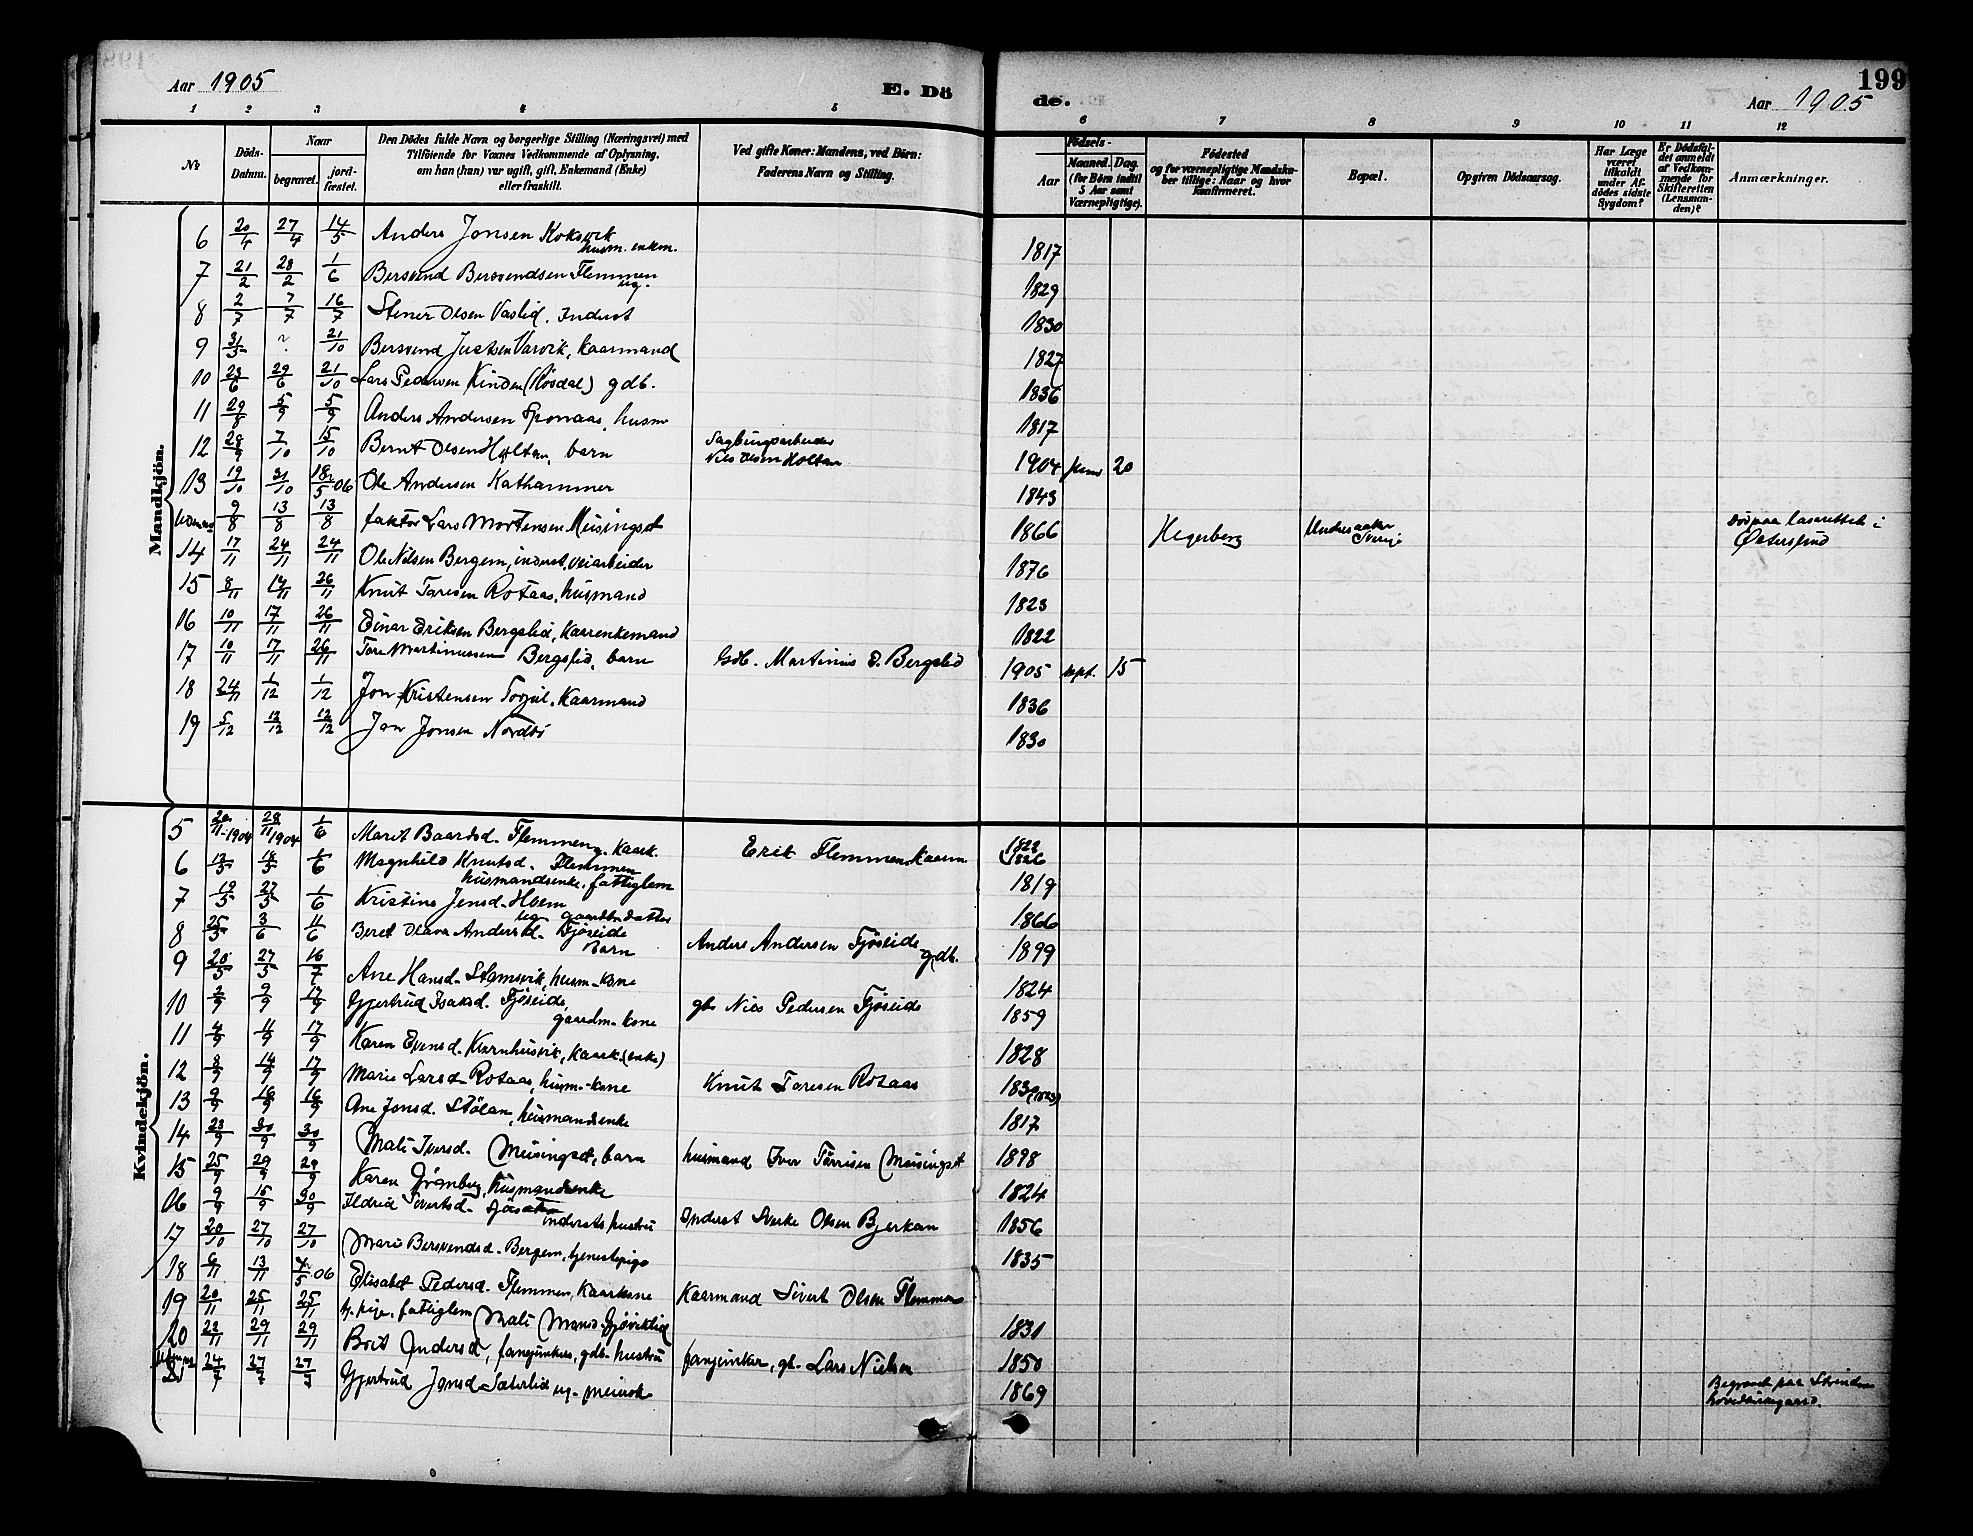 199
Aar 1905
E. Dö
de.
Aar 1905
1 2 3 4 5 6 7 8 9 10 11 12
No
Döds-Datum.
Naar
begravet.
jord-fæstet.
Den Dödes fulde Navn og borgerlige Stilling (Næringsvei) med
Tilföiende for Voxnes Vedkommende af Oplysning,
om han (hun) var ugift, gift, Enkemand (Enke)
eller fraskilt.
Ved gifte Koner: Mandens, ved Börn:
Faderens Navn og Stilling.
Födsels-
Aar
Maaned. Dag.
(for Börn indtil
5 Aar samt
Værnepligtige).
Födested
og for værnepligtige Mandsko-
ber tillige: Naar og hvor
konfirmeret.
Bopæl.
Opgiven Dödsaarsag.
Har Læge
været
tilkaldt
under Af-
dödes sidste
Sygdom?
Er Dödsfal-
det anmeldt
af Vedkom-
mende for
Skifteretten
(Lensman-
den)?
Anmærkninger.
Mandkjön.
6 20/4 27/4 14/5 Anders Jonsen Koksvik husm. enkm. 1817
7 21/2 28/2 1/6 Bersvend Bersvendsen Flemmen ug. 1829
8 2/7 7/7 16/7 Stener Olsen Vaslid. Inderst 1830
9 31/5 ? 21/10 Bersvend Justsen Varvik, kaarmand 1827
10 23/6 29/6 21/10 Lars Pedersen Kinden (Røsdal) gdb. 1836
11 29/8 5/9 5/9 Anders Andersen Sponaas, husm 1817
12 28/9 7/10 15/10 Bernt Olsen Holtan, barn Sagbrugsarbeider Nils Olsen Holtan 1904 20
13 19/10 31/10 18/5 06 Ole Andersen Kathammer 1843
9/8 13/8 13/8 faktor Lars Mortensen Meisingset 1866 Hegerberg Undersaaker Sverige Död paa lasarettet i Østersund
14 17/11 24/11 24/11 Ole Nilsen Bergem, inderst, veiarbeider 1876
15 8/11 17/11 26/11 Knut Toresen Rotaas, husmand 1823
16 10/11 17/11 26/11 Einar Eriksen Bergslid, Kaarenkemand 1822
17 10/11 17/11 26/11 Tore Martinussen Bergslid, barn Gdb. Martinus E. Bergslid 1905 sept. 15
18 24/11 1/12 1/12 Jon Kristensen Torjul. Kaarmand 1836
19 5/12 12/12 12/12 Jon Jonsen Nordbø 1830
Kvindekjön.
5 20/11-1904 28/11 1904 1/6 Marit Baardsd. Flemmen, kaark. Erik Flemmen kaarm 1822 (1826
6 13/5 18/5 1/6 Magnhild Knutsd. Flemmen husmandsenke. fattiglem 1819
7 19/5 27/5 1/6 Kristine Jensd. Hoem ug. gaardbr. datter 1866
8 25/5 3/6 11/6 Beret Olava Andersd. Fjøseide Barn Anders Andersen Fjøseide gdb. 1899
9 20/5 27/5 16/7 Ane Hansd. Stamsvik, husm-kone 1824
10 2/9 9/9 17/9 Gjertrud Isaksd. Fjøseide, gaardm-kone gb Nils Pedersen Fjøseide 1859
11 4/9 11/9 17/9 Karen Evensd. Kvernhusvik, kaark. (enke) 1828
12 8/9 14/9 17/9 Marie Larsd. Rotaas, husm-kone Knut Toresen Rotaas
13 9/9 16/9 16/9 Ane Jonsd. Stølan, husmandsenke 1817
14 23/9 30/9 30/9 Mali Iversd. Meisingset, barn husmand Iver Tørrisen Meisingset 1898
15 25/9 29/9 29/9 Karen Grønberg, husmandsenke 1824
16 9/9 15/9 30/9 Ildrid Sivertsd. inderstshustru Inderst Sverke Olsen Bjerkan 1856
17 20/10 27/10 27/10 Mari Bersvendsd. Bergem, tjenestepige 1835
18 6/11 13/11 4/5 06 Elisabet Pedersd. Flemmen, Kaarkone Kaarmand Sivert Olsen Flemmen
19 20/11 25/11 25/11 tj. pige. fattiglem Mali Monsd. Gjøviklid 1831
20 22/11 29/11 29/11 Brit Andersd, fanejunkers, gdb. hustru fanejunker, gb. Lars Nielsen 1850
24/7 27/7 27/7 Gjertrud Jonsd. Sæterlid ug. meierske 1869 Begravet paa Strindens hovedkirkegaard.